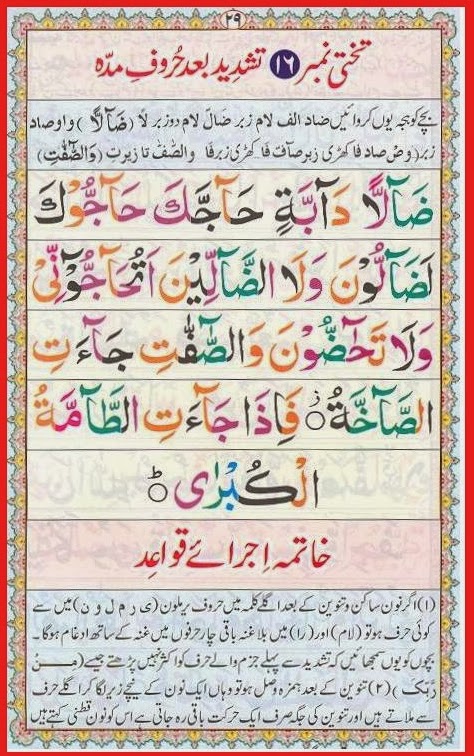 ۲۹
تختی نمبر ۱۶ تشدید بعد حُروفِ مدّہ
بچے کو ہجہ یوں کروائیں ضاد الف لام زبر ضَالَ لام دو زبر لاً (ضَآلًّا) واو صاد
زبر (وصْ صاد فا کھڑی زبر صآفّ فا کھڑی زبر فا والصّٰفّٰ تا زیر تِ (وَالصّٰٓفّٰتِ)
ضَآلًّا دَآبَّةٍ حَآجَّكَ حَآجُّوْكَ
لَضَآلُّوْنَ وَلَا الضَّآلِّيْنَ اَتُحَآجُّوْٓنِّىْ
وَلَا تَحٰٓضُّوْنَ وَالصّٰٓفّٰتِ جَآءَتِ
الصَّآخَّةُ ز فَاِذَا جَآءَتِ الطَّآمَّةُ
الْكُبْرٰى ط
خاتمہ اِجرائے قواعِد
(۱) اگر نون ساکن و تنوین کے بعد اگلے کلمہ میں حروف یرملون (ی ر م ل و ن) میں سے
کوئی حرف ہو تو (لام) اور (را) میں بلا غنہ باقی چار حرفوں میں غنہ کے ساتھ ادغام ہوگا۔
بچوں کو یوں سمجھائیں کہ تشدید سے پہلے جزم والے حرف کو اکثر نہیں پڑھتے جیسے (مِنْ
رَّبِّكَ) (۲) تنوین کے بعد ہمزہ وصل ہو تو وہاں ایک نون کے نیچے زیر لگا کر اگلے حرف
سے ملاتے ہیں اور تنوین کی جگہ صرف ایک حرکت باقی رہ جاتی ہے اس کو نون قطنی کہتے ہیں